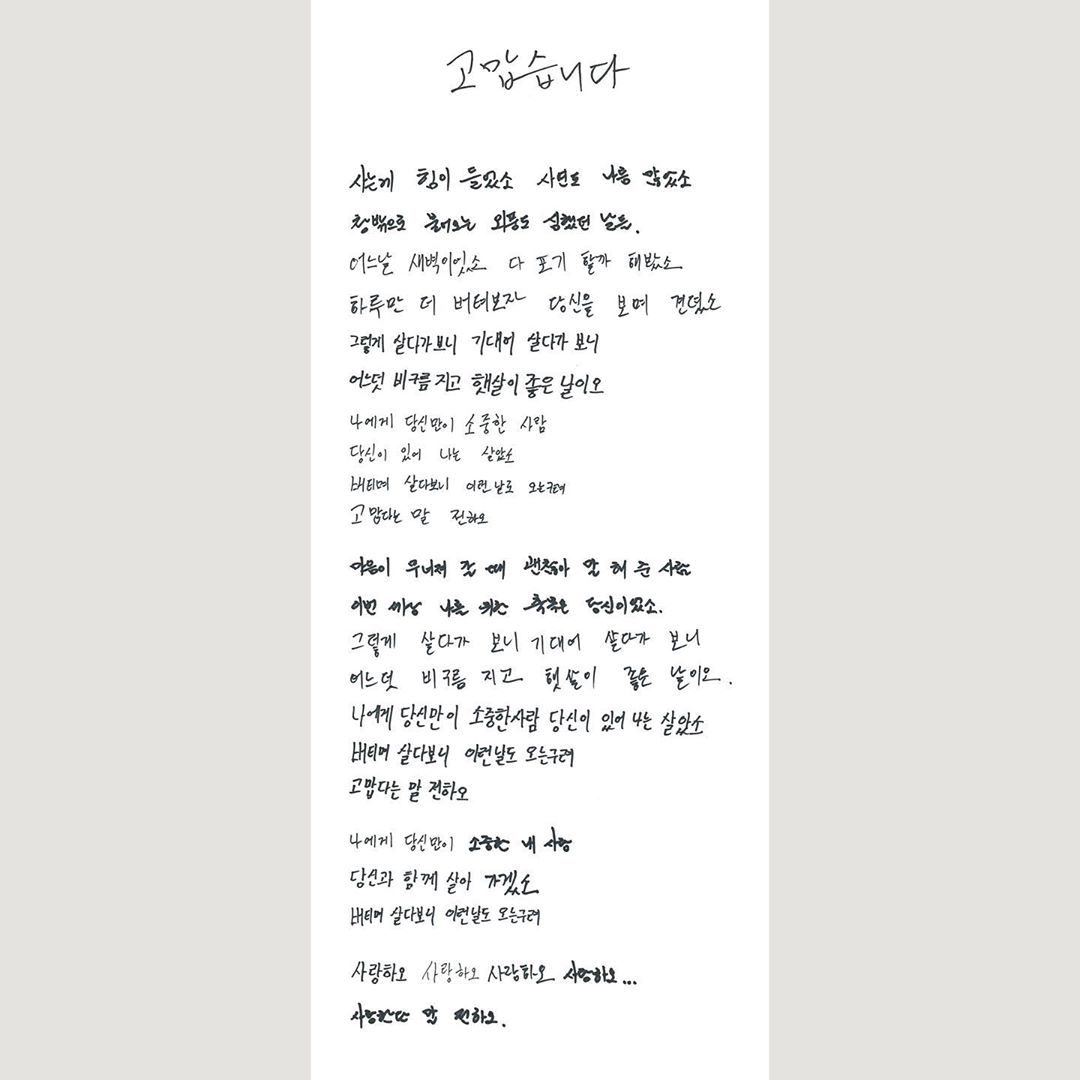 고맙습니다
사는게 힘이 들었소 사연도 나름 많았소
창밖으로 불어오는 외풍도 심했던 날들.
어느날 새벽이었소 다 포기 할까 해봤소
하루만 더 버텨보자 당신을 보며 견뎠소
그렇게 살다가보니 기대어 살다가 보니
어느덧 비구름 지고 햇살이 좋은 날이오
나에게 당신만이 소중한 사람
당신이 있어 나는 살았소
버티며 살다보니 이런날도 오는구려
고맙다는 말 전하오
마음이 무너져 갈 때 괜찮아 말 해 준 사람
이번 세상 나를 위한 축복은 당신이었소.
그렇게 살다가 보니 기대어 살다가 보니
어느덧 비구름 지고 햇살이 좋은 날이오.
나에게 당신만이 소중한사람 당신이 있어 나는 살았소
버티며 살다보니 이런날도 오는구려
고맙다는 말 전하오
나에게 당신만이 소중한 내 사랑
당신과 함께 살아 가겠소
버티며 살다보니 이런날도 오는구려
사랑하오 사랑하오 사랑하오 사랑하오...
사랑한단 말 전하오.